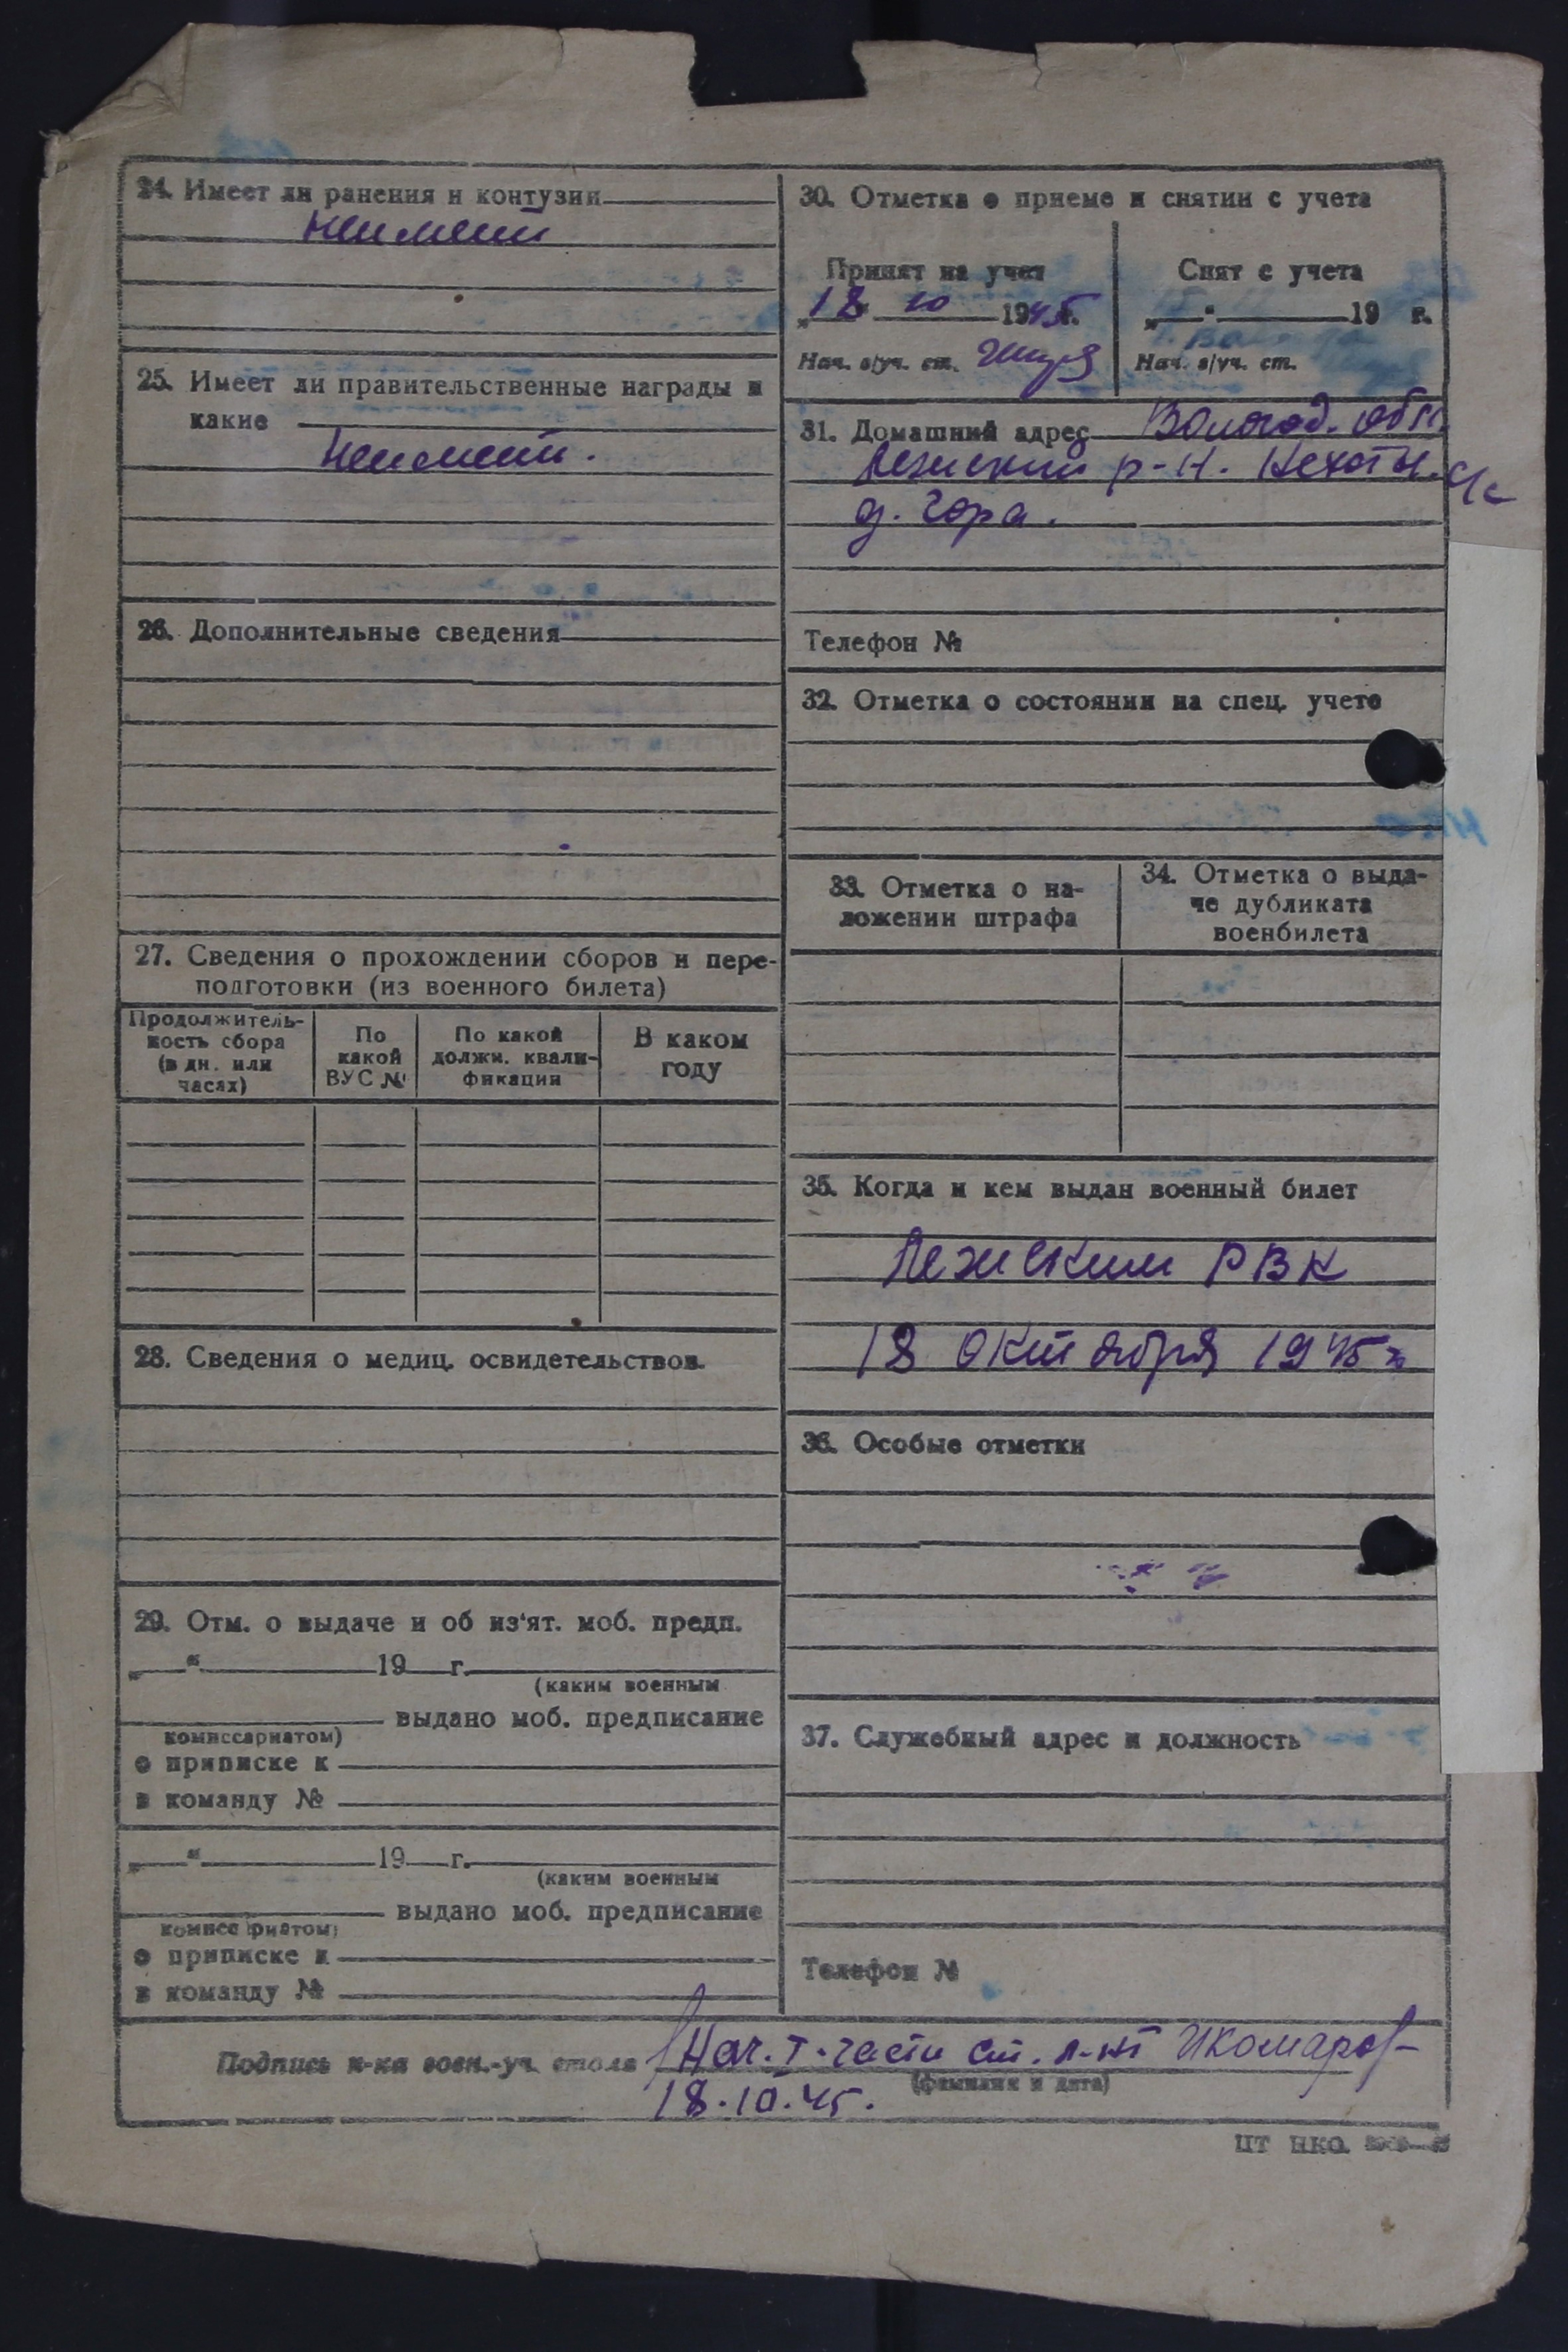 24. Имеет ли ранения и контузии
неимеет
25. Имеет ли правительственные награды и
какие
неимеет.
26. Дополнительные сведения
27. Сведения о прохождении сборов и пере-
подготовки (из военного билета)
Продолжитель-
ность сбора
(в дн. или
часах)
По
какой
ВУС №
По какой
должн. квали-
фикации
В каком
году
28. Сведения о медиц. освидетельствов.
29. Отм. о выдаче и об из'ят. моб. предп.
„ “ 19 г.
(каким военным
выдано моб. предписание
комиссариатом)
о приписке к
в команду №
„ “ 19 г.
(каким военным
выдано моб. предписание
комиссариатом)
о приписке к
в команду №
30. Отметка о приеме и снятии с учета
Принят на учет
„18“ 10 1945г.
Нач. в/уч. ст.
Снят с учета
„ “ 19 г.
Нач. в/уч. ст.
31. Домашний адрес Вологод. обл.
Лежский р-н. с/с
д. Гора.
Телефон №
32. Отметка о состоянии на спец. учете
33. Отметка о на-
ложении штрафа
34. Отметка о выда-
че дубликата
военбилета
35. Когда и кем выдан военный билет
Лежским РВК
18 октября 1945 г.
36. Особые отметки
37. Служебный адрес и должность
Телефон №
Подпись н-ка воен.-уч. стола Нач. I. части ст. л-нт Комаров
(фамилия и дата)
18.10.45.
ЦТ НКО.